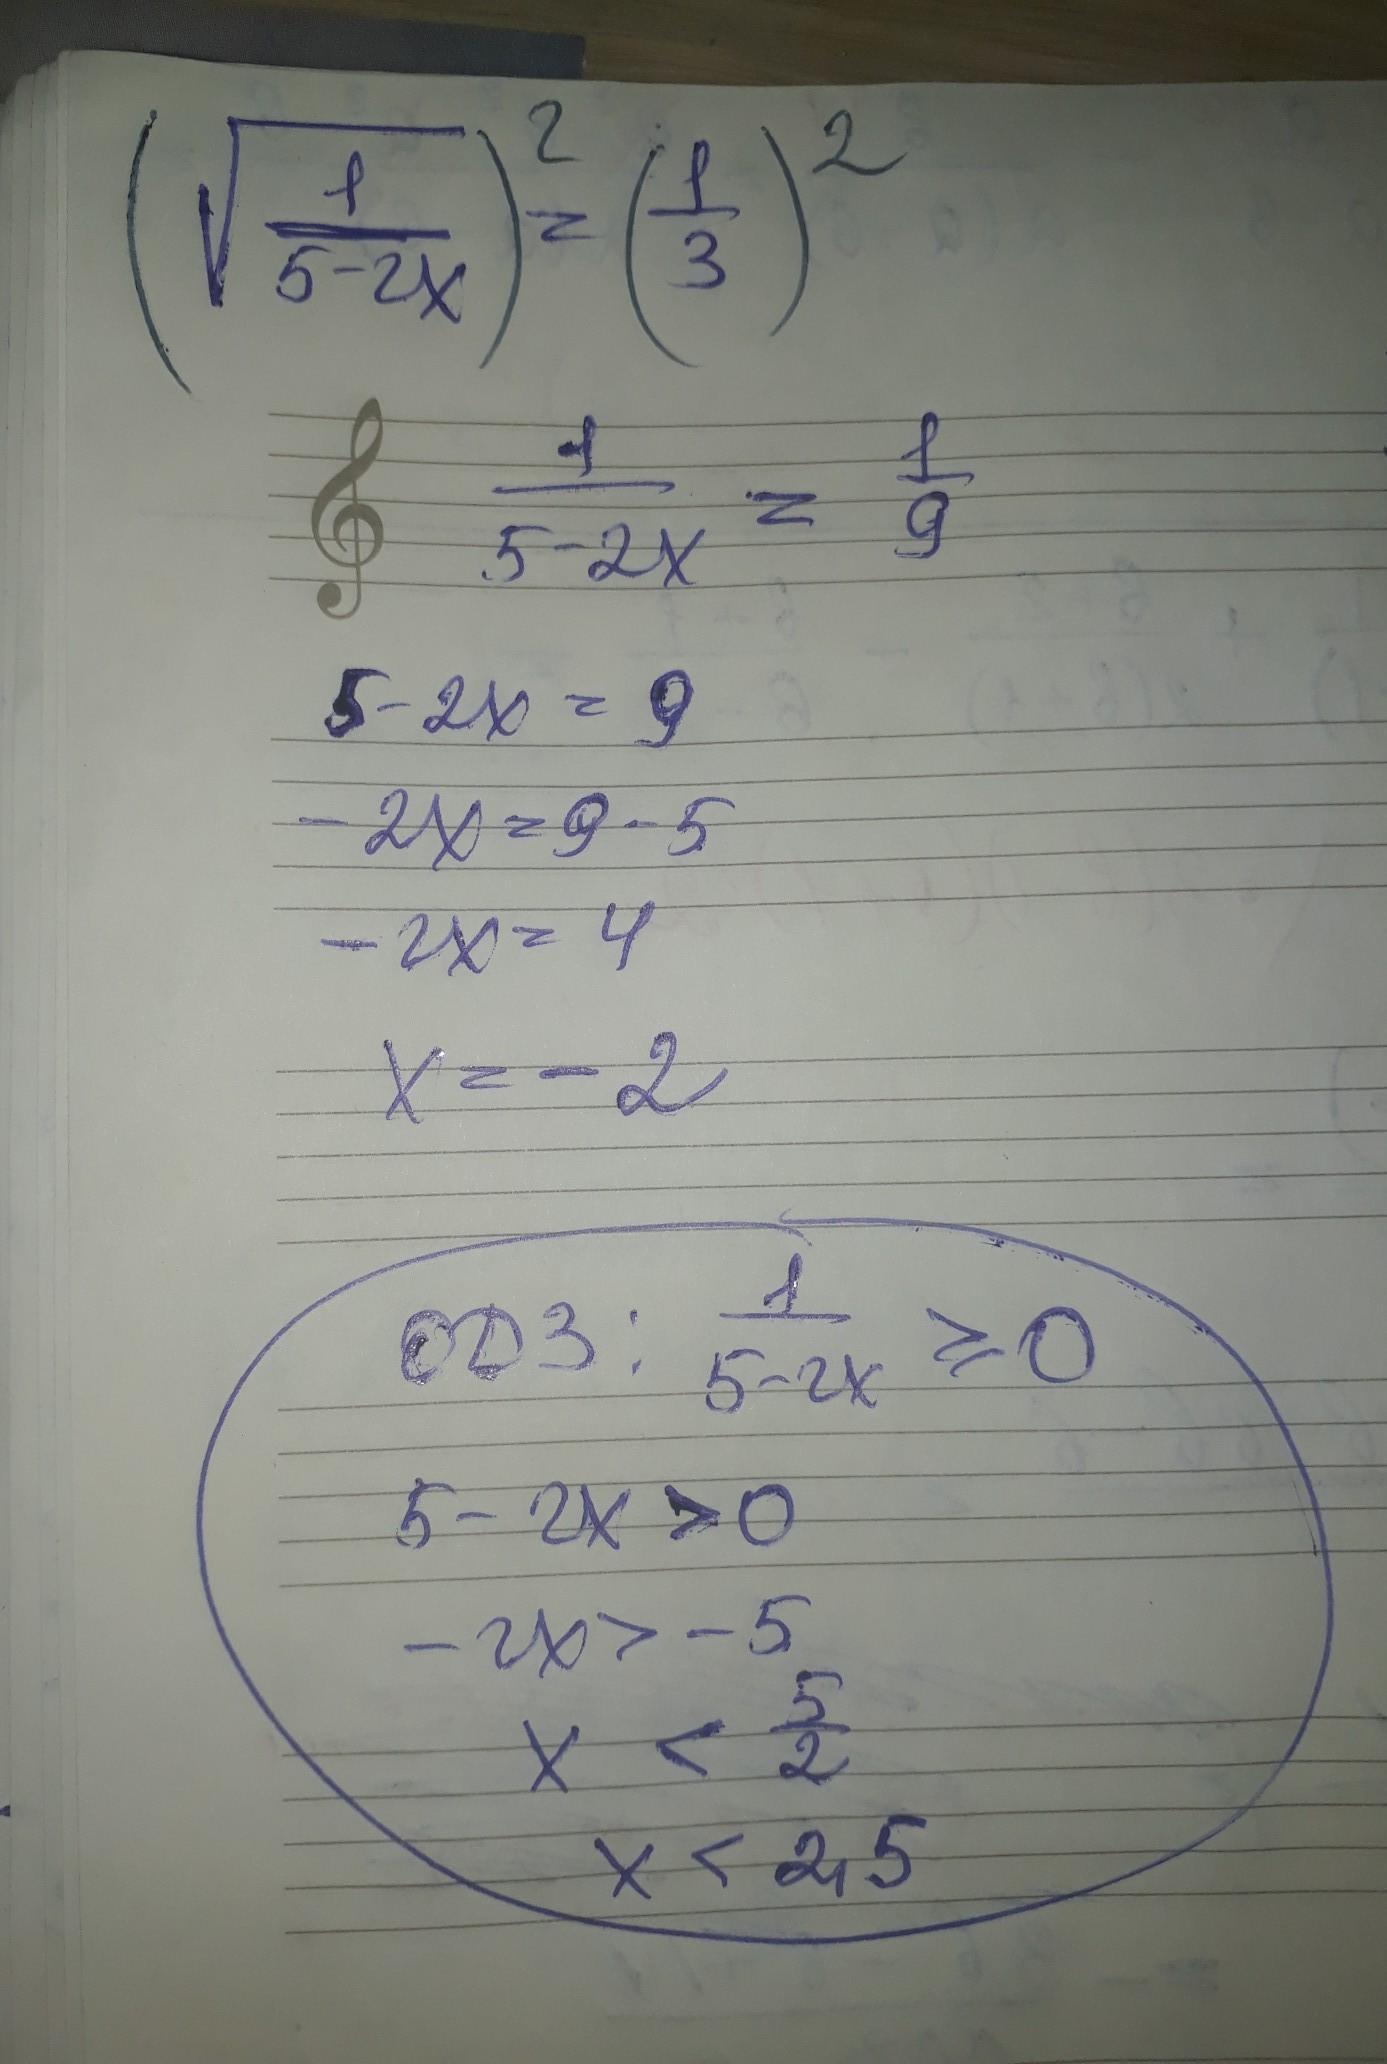 (√(1/(5-2x)))² = (1/3)²
1/(5-2x) = 1/9
5-2x = 9
-2x = 9-5
-2x = 4
x = -2
ОДЗ: 1/(5-2x) ≥ 0
5-2x > 0
-2x > -5
x < 5/2
x < 2,5